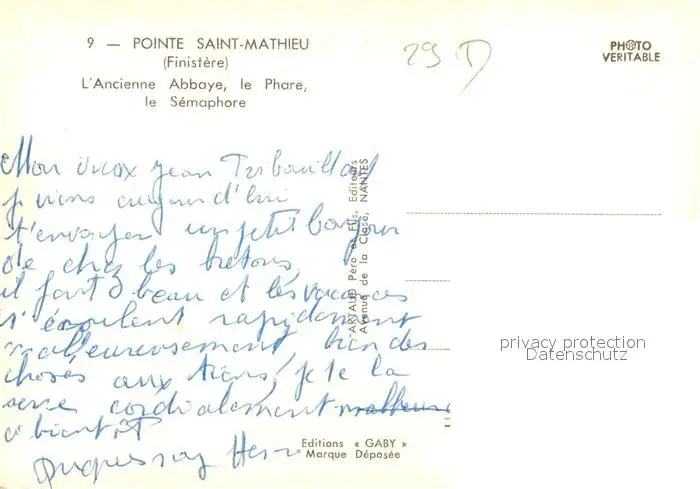 9 — POINTE SAINT-MATHIEU
(Finistère)
L'Ancienne Abbaye, le Phare,
le Sémaphore
29
PHOTO
VERITABLE
Mon vieux Jean
je viens aujourd'hui
t'envoyer un petit bonjour
de chez les bretons,
il fait beau et les vacances
s'écoulent rapidement
malheureusement bien des
choses aux tiens, je te la
serre cordialement
à bientôt
ARTAUD Père et Fils, Editeurs
Avenue de la Close, NANTES
privacy protection
Datenschutz
Editions « GABY »
Marque Déposée